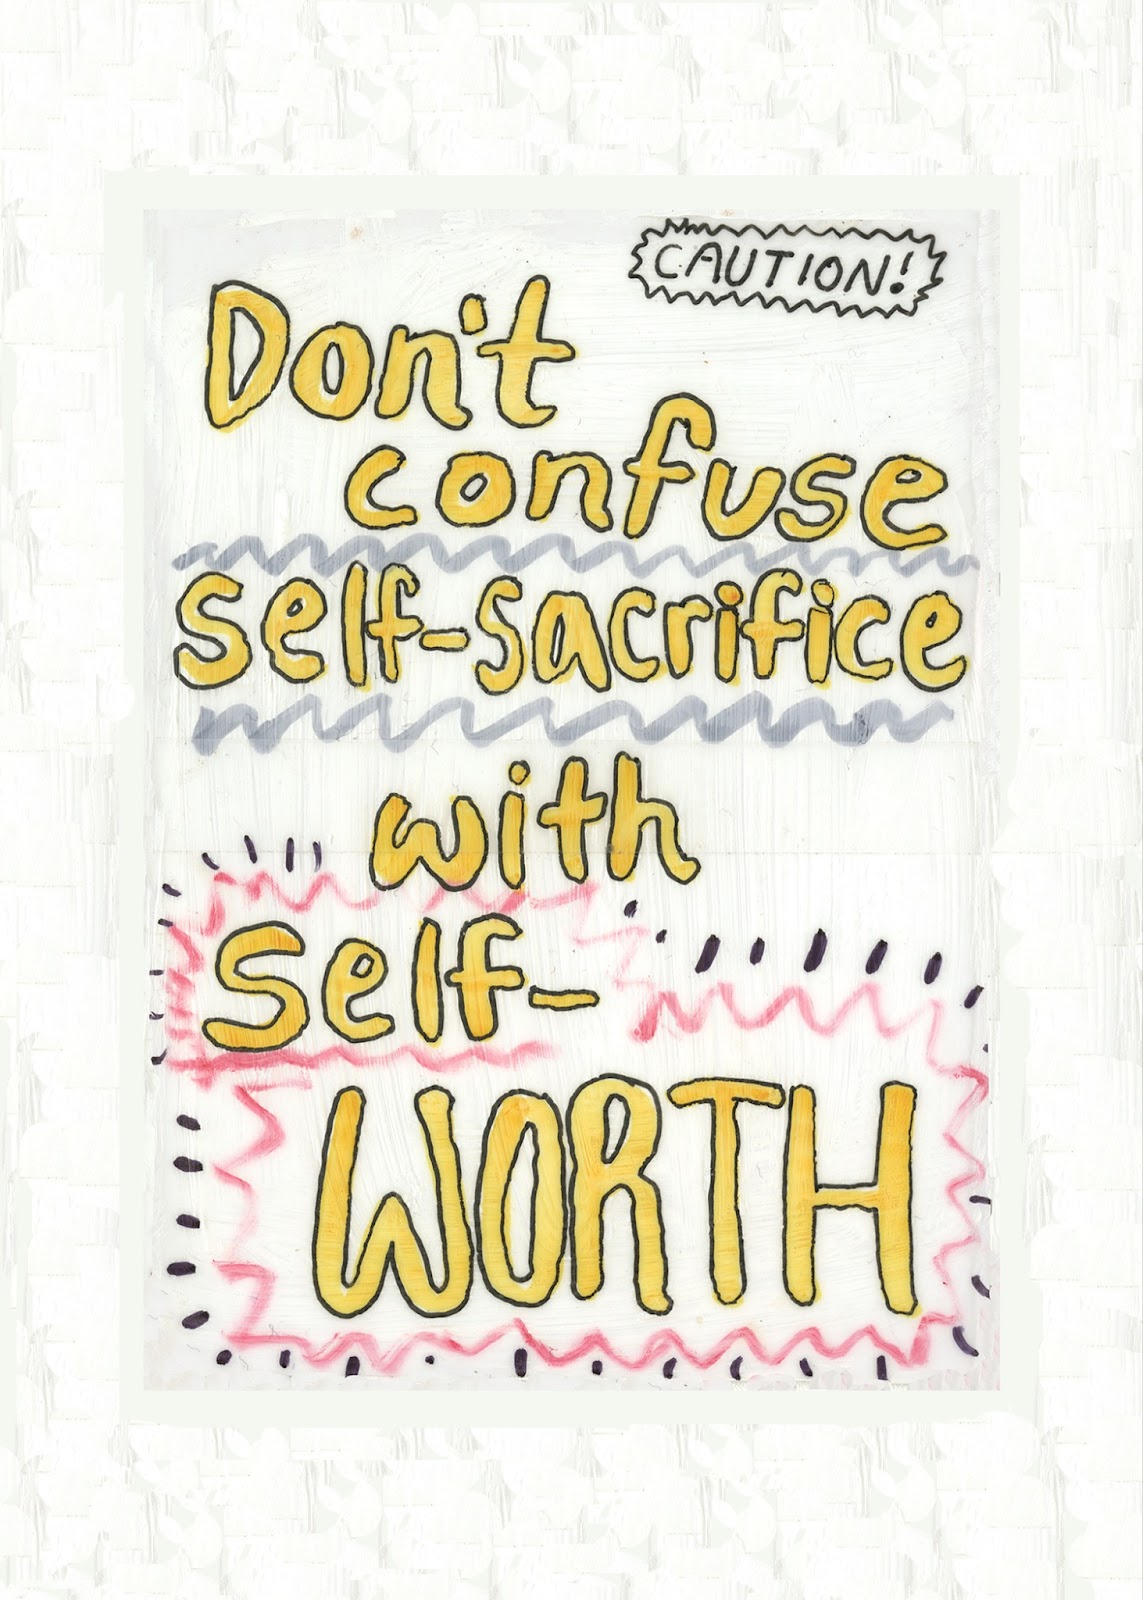 CAUTION!
Don't
confuse
self-sacrifice
with
Self-
WORTH